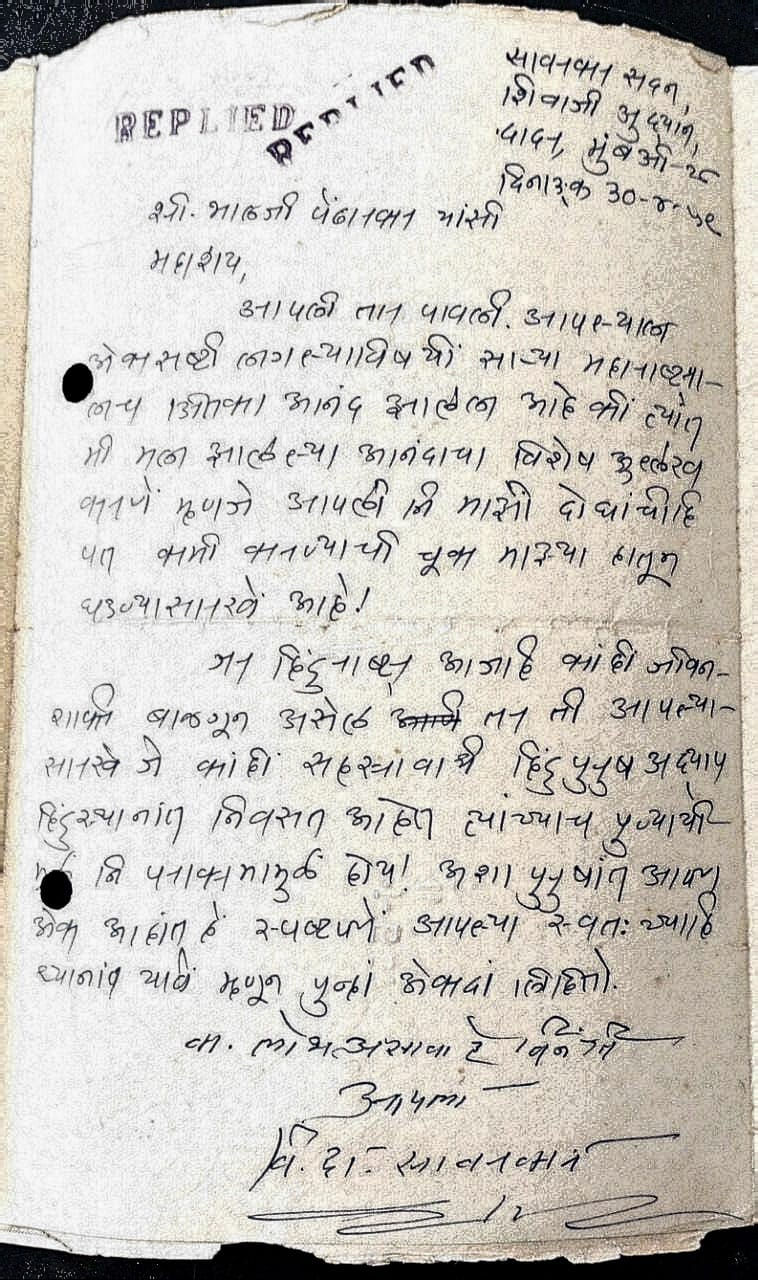 REPLIED
REPLIED
सावरकर सदन,
शिवाजी उद्यान,
दादर, मुंबअी-२८
दिनाङ्क ३०-४-५९
श्री. भालजी पेंढारकर यांसी
महाशय,
आपली तार पावली. आपल्याला
अेकसष्टी लागल्याविषयीं साऱ्या महाराष्ट्रा-
लाच अितका आनंद झालेला आहे कीं त्यांत
मी मला झालेल्या आनंदाचा विशेष अुल्लेख
करणें म्हणजे आपली नि माझी दोघांचीहि
पत कमी करण्याची चूक माझ्या हातून
घडण्यासारखें आहे!
जर हिंदुराष्ट्र आजहि कांहीं जीवन-
शक्ती बाळगून असेल तर ती आपल्या-
सारखे जे कांहीं सहस्त्रावधी हिंदुपुरुष अद्याप
हिंदुस्थानांत निवसत आहेत त्यांच्याच पुण्याची-
नि पराक्रमामुळें होय! अशा पुरुषांत आपण
अेक आहांत हें स्पष्टपणें आपल्या स्वतःच्याहि
ध्यानांत यावें म्हणून पुन्हां अेकदां लिहितो.
क. लोभ असावा हे विनंती
आपला
वि. दा. सावरकर